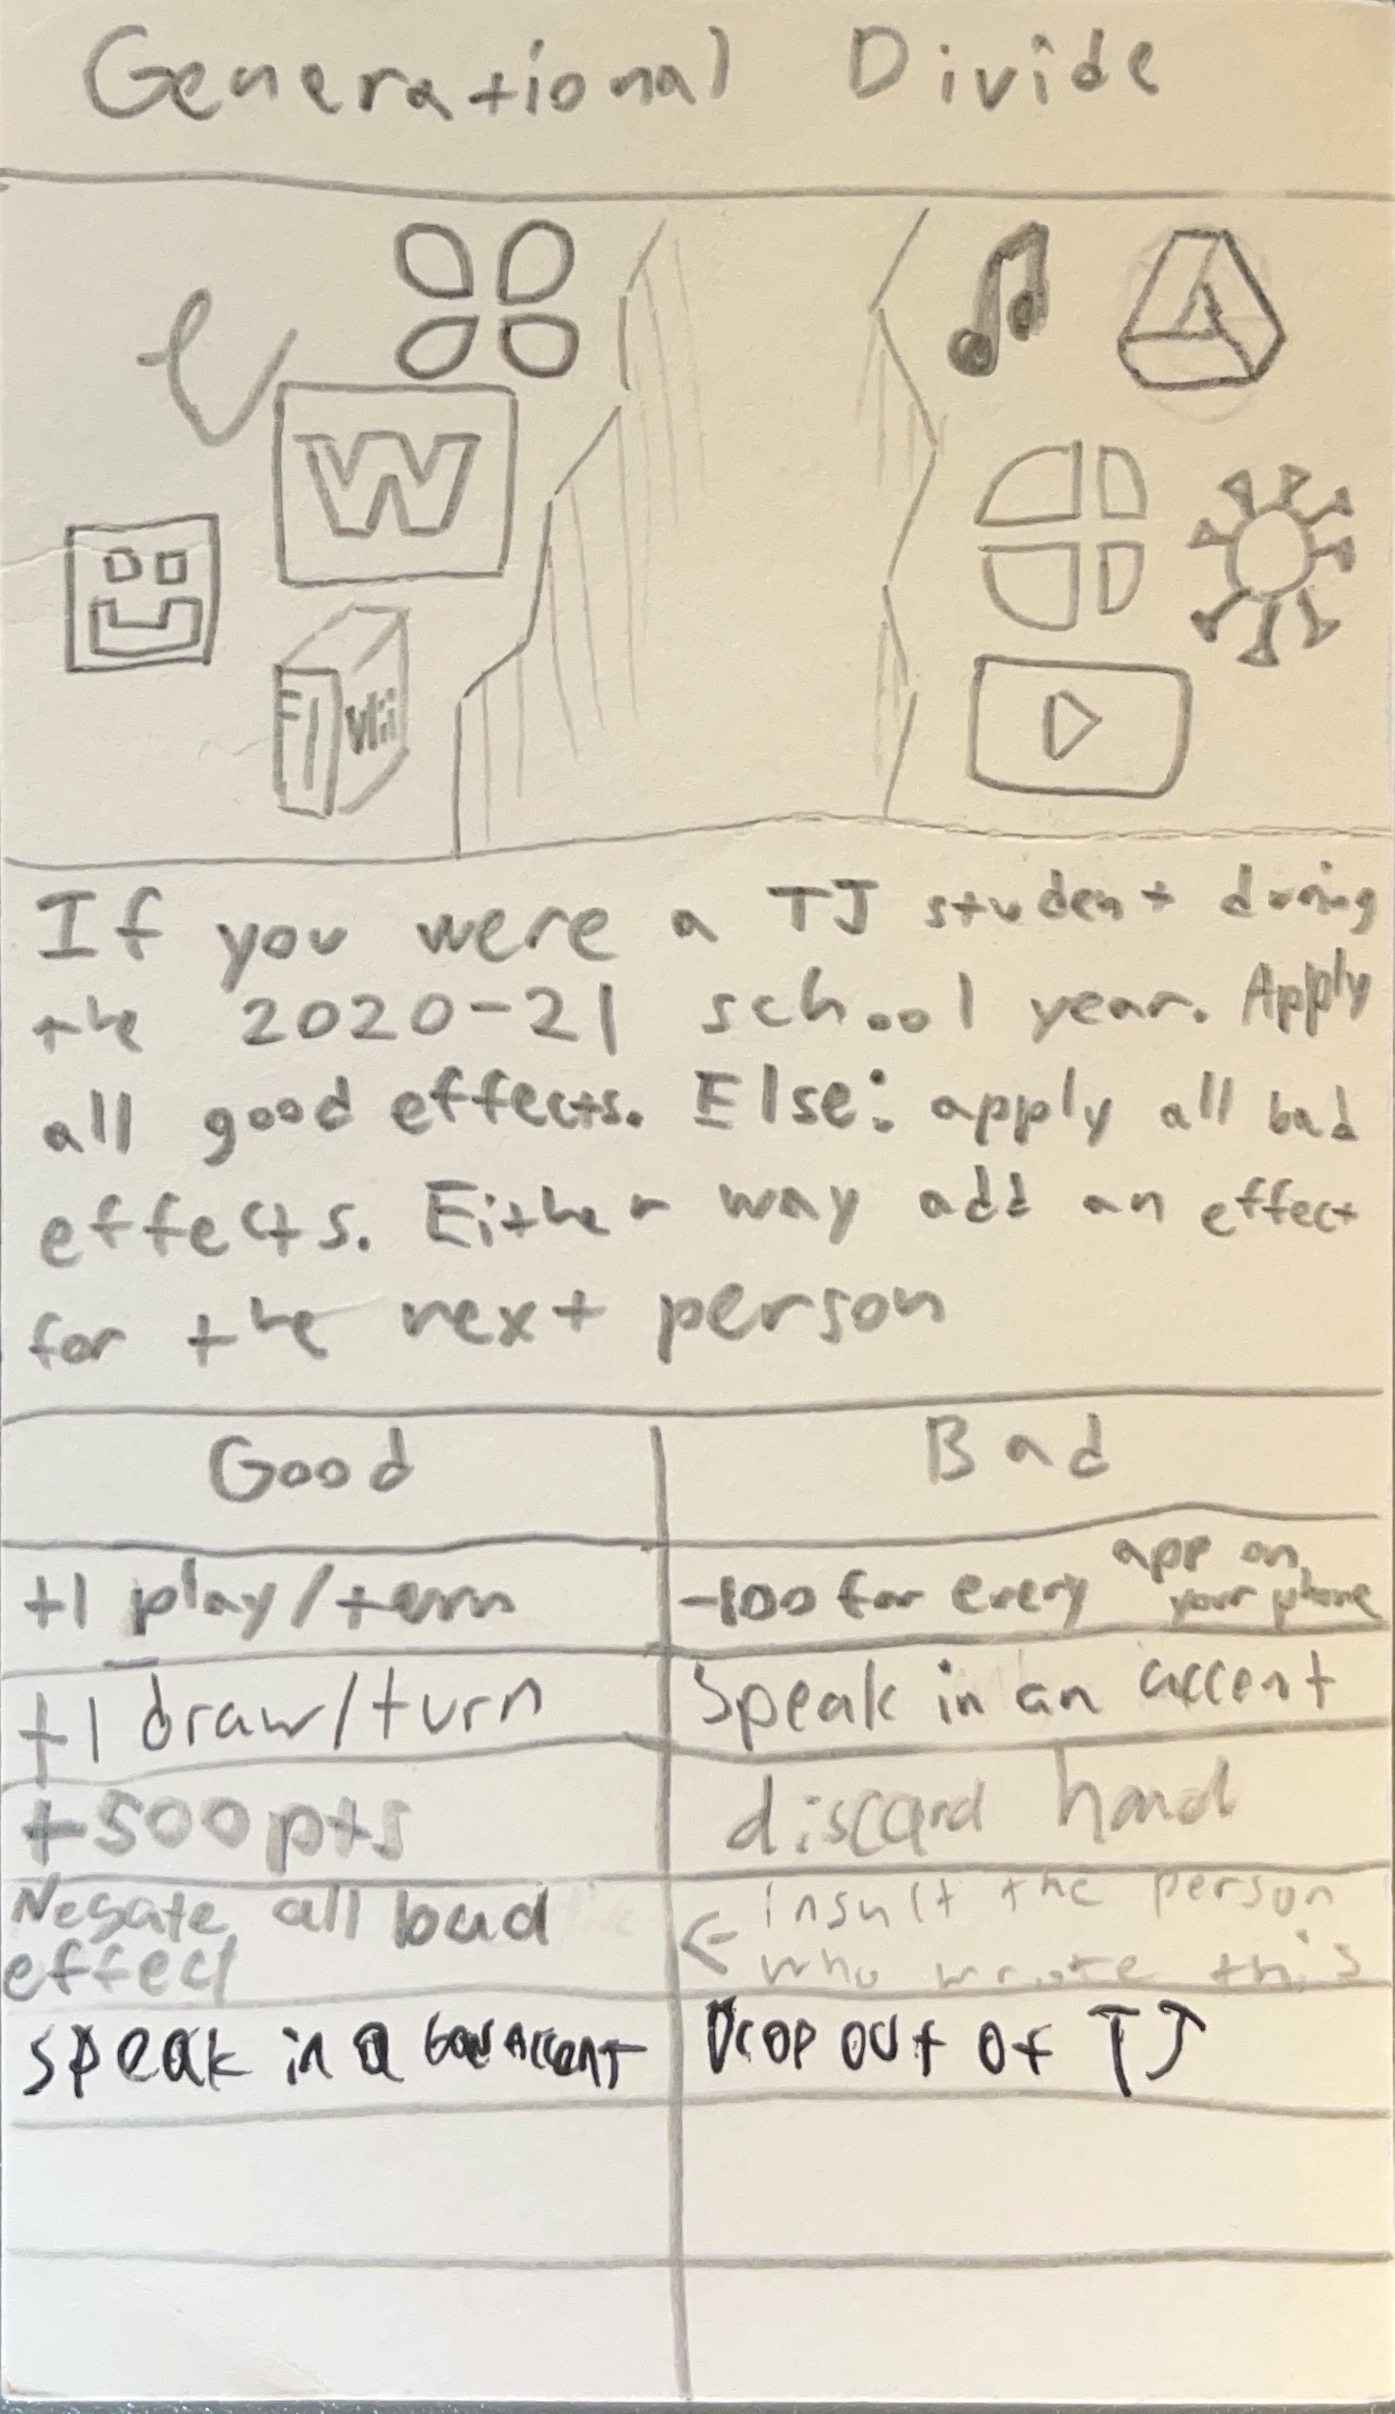 Generational Divide
W
Wii
If you were a TJ student during
the 2020-21 school year. Apply
all good effects. Else: apply all bad
effects. Either way add an effect
for the next person
Good
Bad
+1 play/turn
-100 for every app on your phone
+1 draw/turn
Speak in an accent
+500pts
discard hand
Negate all bad
effect
<- insult the person
who wrote this
Speak in a Accent
Drop out of TJ